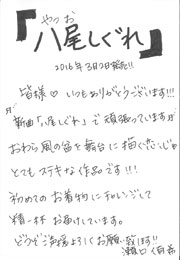 やつお
『八尾しぐれ』
2016年3月2日発売!!
皆様♡いつもありがとうございます!!!
新曲「八尾しぐれ」で頑張っています
おわら風の盆を舞台に描く恋心
とてもステキな作品です!!!
初めてのお着物にチャレンジして
精一杯お届けしています。
どうぞご声援よろしくお願い致します!!